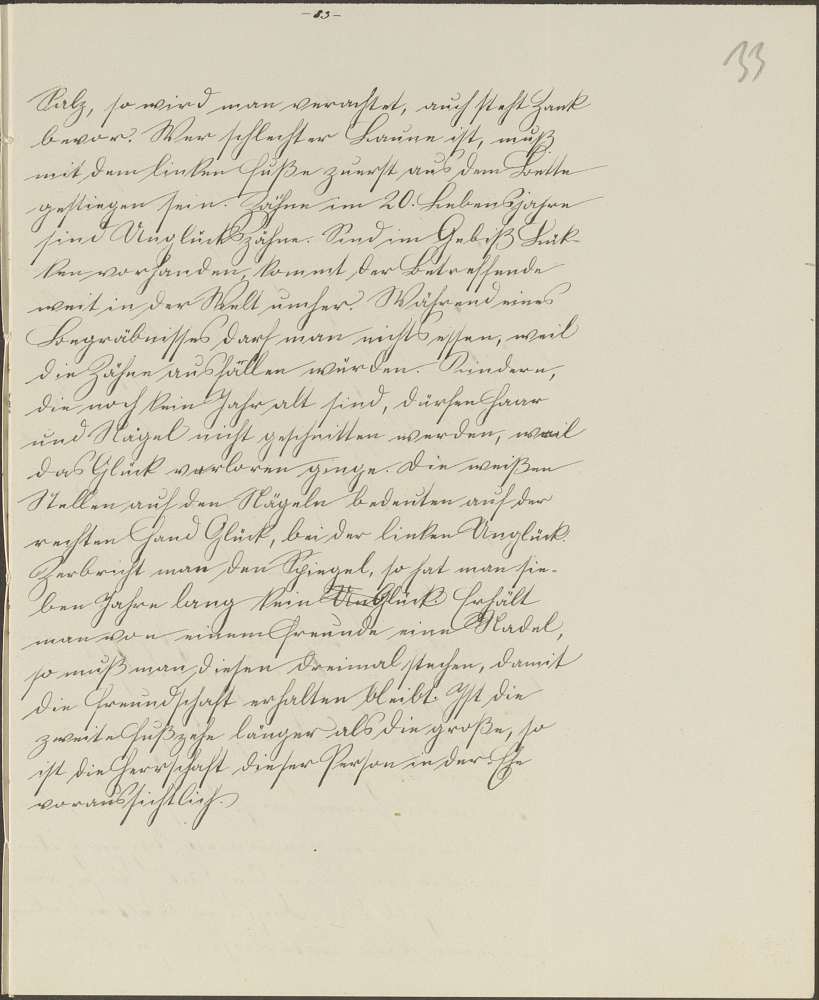 -53-
33
Salz, so wird man verachtet, auch steht Zank
bevor. Wer schlechter Laune ist, muß
mit dem linken Fuße zuerst aus dem Bette
gestiegen sein. Zähne im 20. Lebensjahre
sind Unglückszähne. Sind im Gebiß Lük-
ken vorhanden, kommt der Betreffende
weit in der Welt umher. Während eines
Begräbnisses darf man nichts essen, weil
die Zähne ausfallen würden. Kindern,
die noch kein Jahr alt sind, dürfen Haar
und Nägel nicht geschnitten werden, weil
das Glück verloren ginge. Die weißen
Stellen auf den Nägeln bedeuten auf der
rechten Hand Glück, bei der linken Unglück.
Zerbricht man den Spiegel, so hat man sie-
ben Jahre lang kein Glück. Erhält
man von einem Freunde eine Nadel,
so muß man diesen dreimal stechen, damit
die Freundschaft erhalten bleibt. Ist die
zweite Fußzehe länger als die große, so
ist die Herrschaft dieser Person in der Ehe
voraussichtlich.